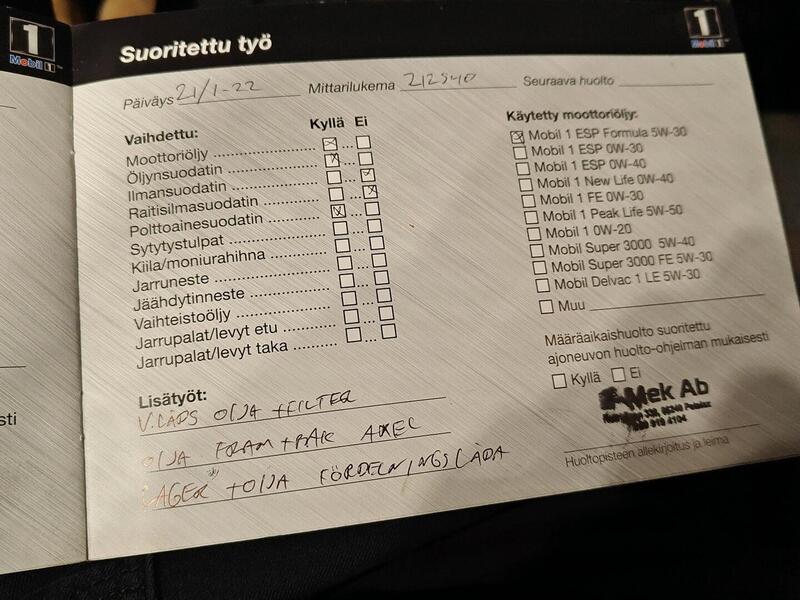 1
Mobil 1™
1
Mobil 1™
Suoritettu työ
Päiväys 21/1-22 Mittarilukema 212540 Seuraava huolto
Vaihdettu: Kyllä Ei
Moottoriöljy
Öljynsuodatin
Ilmansuodatin
Raitisilmasuodatin
Polttoainesuodatin
Sytytystulpat
Kiila/moniurahihna
Jarruneste
Jäähdytinneste
Vaihteistoöljy
Jarrupalat/levyt etu
Jarrupalat/levyt taka
Käytetty moottoriöljy:
Mobil 1 ESP Formula 5W-30
Mobil 1 ESP 0W-30
Mobil 1 ESP 0W-40
Mobil 1 New Life 0W-40
Mobil 1 FE 0W-30
Mobil 1 Peak Life 5W-50
Mobil 1 0W-20
Mobil Super 3000 5W-40
Mobil Super 3000 FE 5W-30
Mobil Delvac 1 LE 5W-30
Muu
Määräaikaishuolto suoritettu
ajoneuvon huolto-ohjelman mukaisesti
Kyllä Ei
Mek Ab
Huoltopisteen allekirjoitus ja leima
Lisätyöt:
V.LÅDS OLJA + FILTER
OLJA FRAM + BAK AXEL
LAGER + OLJA FÖRDELNINGSLÅDA
sti